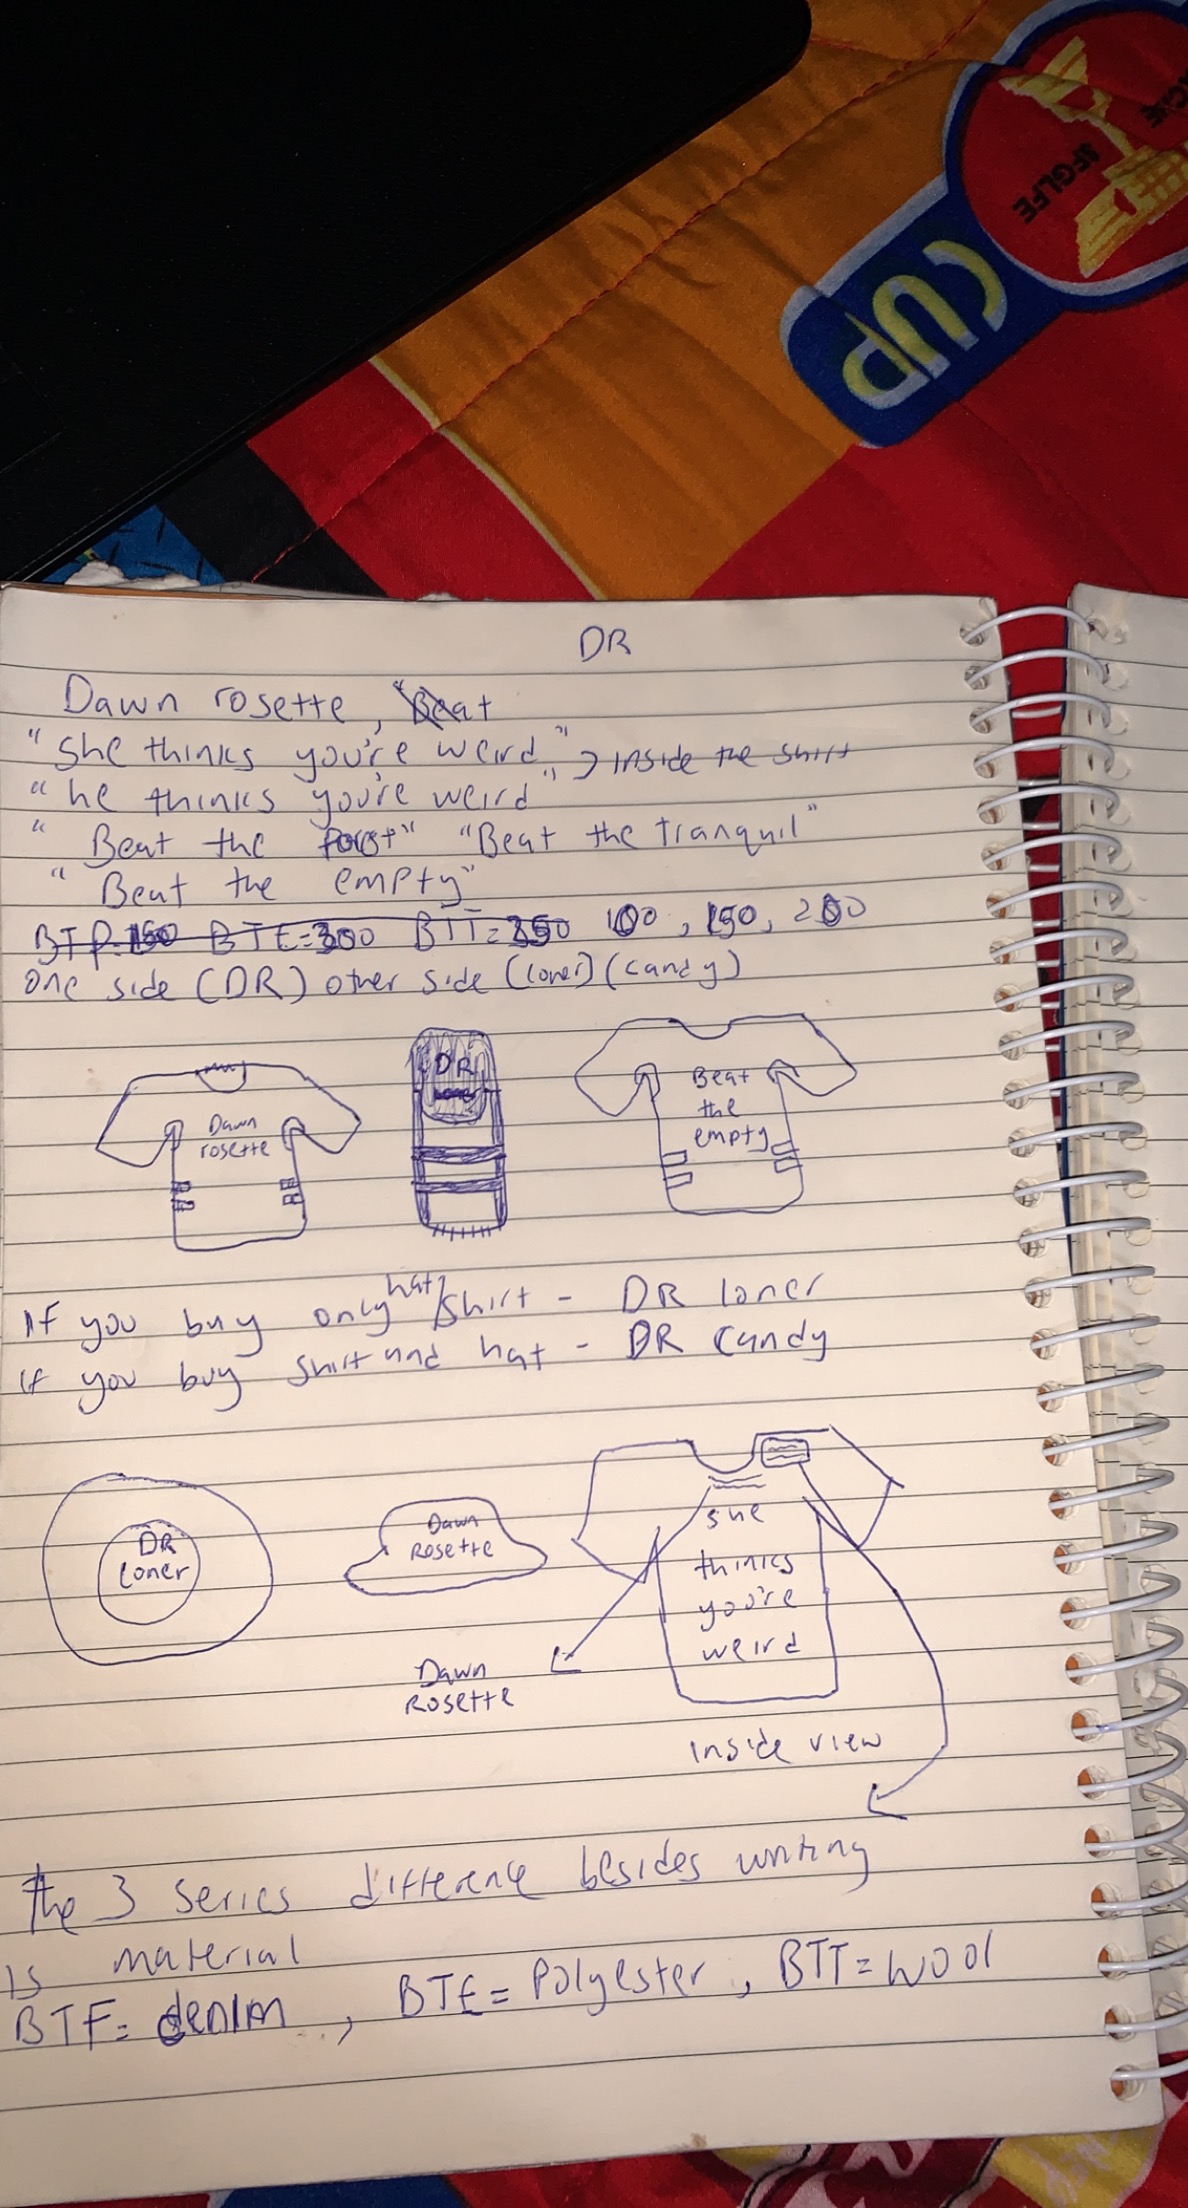 CUP
DR
Dawn rosette, Beat
"She thinks you're weird" inside the shirt
"he thinks you're weird"
"Beat the" "Beat the Tranquil"
"Beat the empty"
BTE=300 BTT= 100, 150, 200
one side (DR) other side (loner) (candy)
Dawn
rosette
DR
Loner
Beat
the
empty
If you buy only hat/shirt - DR loner
if you buy shirt and hat - DR Candy
DR
Loner
Dawn
Rosette
she
thinks
you're
weird
Dawn
Rosette
Inside view
the 3 series difference besides writing
is material
BTF= denim, BTE= Polyester, BTT= wool